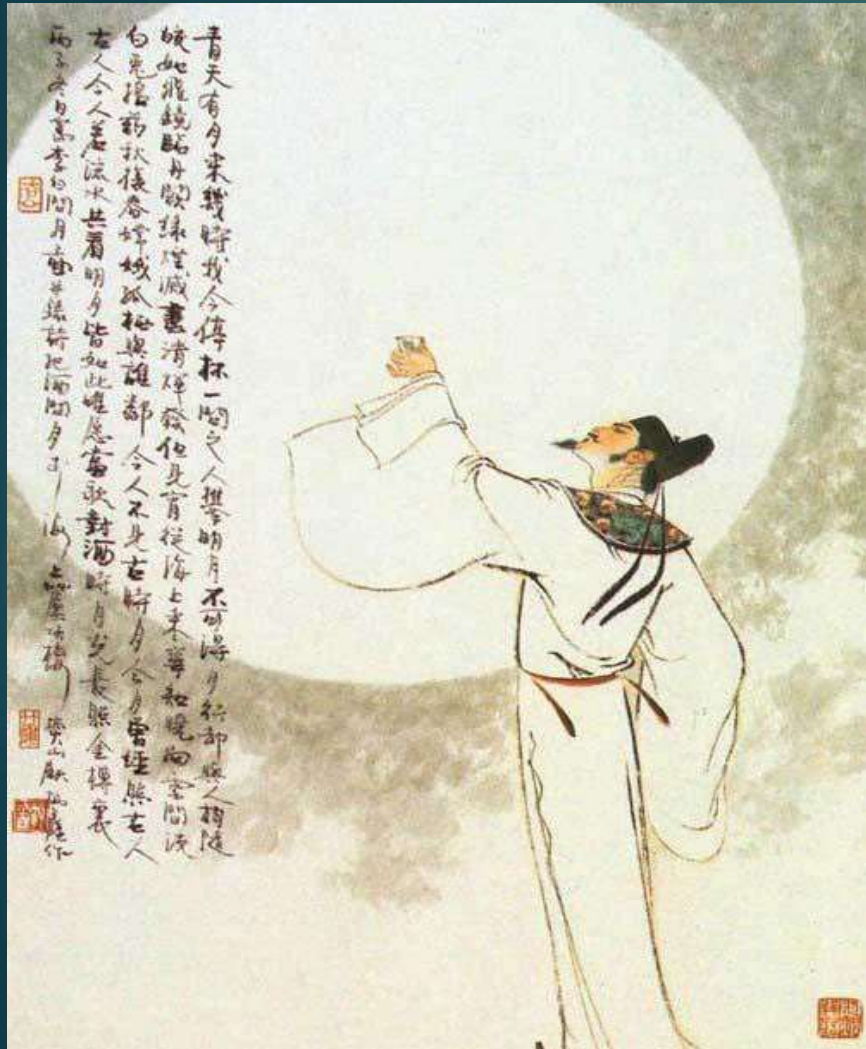 青天有月來幾時我今停杯一問之人攀明月不可得月行却與人相隨
皎如飛鏡臨丹闕緑煙滅盡清輝發但見宵從海上來寧知曉向雲間没
白兔搗藥秋復春嫦娥孤栖與誰鄰今人不見古時月今月曾經照古人
古人今人若流水共看明月皆如此唯愿當歌對酒時月光長照金樽裏
丙子冬日寫李白問月圖并録詩把酒問月于海上